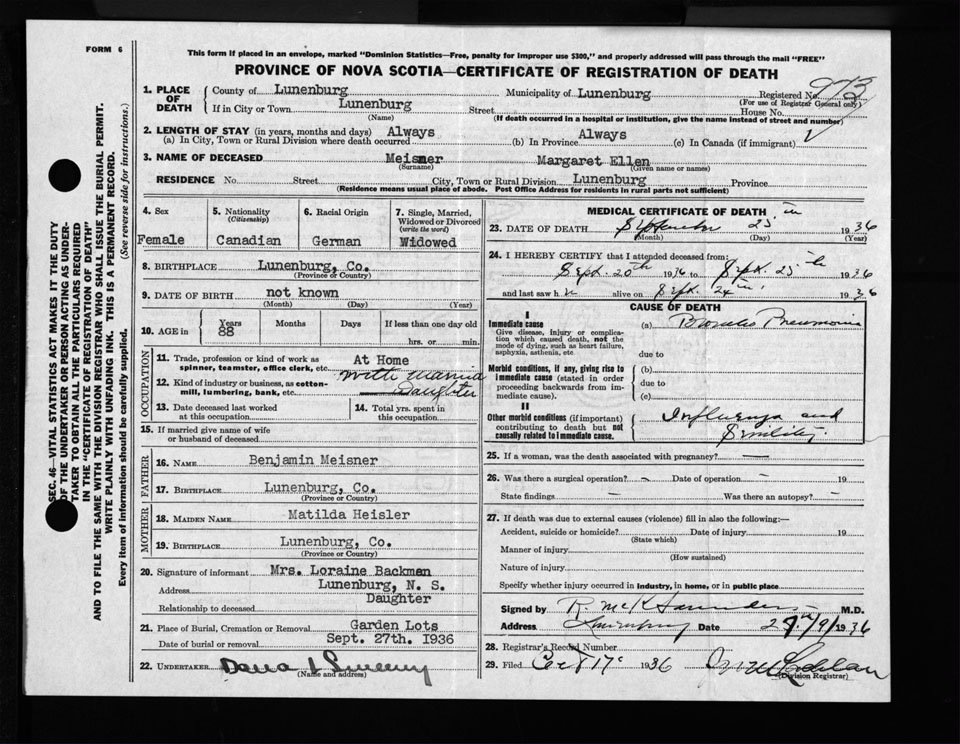 FORM 6
This form if placed in an envelope, marked "Dominion Statistics—Free, penalty for improper use $300," and properly addressed will pass through the mail "FREE"
PROVINCE OF NOVA SCOTIA—CERTIFICATE OF REGISTRATION OF DEATH
SEC. 46—VITAL STATISTICS ACT MAKES IT THE DUTY
OF THE UNDERTAKER OR PERSON ACTING AS UNDER-
TAKER TO OBTAIN ALL THE PARTICULARS REQUIRED
IN THE "CERTIFICATE OF REGISTRATION OF DEATH"
AND TO FILE THE SAME WITH THE DIVISION REGISTRAR WHO SHALL ISSUE THE BURIAL PERMIT.
WRITE PLAINLY WITH UNFADING INK. THIS IS A PERMANENT RECORD.
Every item of information should be carefully supplied. (See reverse side for instructions.)
1. PLACE OF DEATH
County of Lunenburg Municipality of Lunenburg Registered No.
(For use of Registrar General only)
If in City or Town Lunenburg Street House No.
(Name) (If death occurred in a hospital or institution, give the name instead of street and number)
2. LENGTH OF STAY (in years, months and days) Always Always
(a) In City, Town or Rural Division where death occurred (b) In Province (c) In Canada (if immigrant)
3. NAME OF DECEASED Meisner Margaret Ellen
(Surname) (Given name or names)
RESIDENCE No. Street City, Town or Rural Division Lunenburg Province
(Residence means usual place of abode. Post Office Address for residents in rural parts not sufficient)
4. Sex
Female
5. Nationality
(Citizenship)
Canadian
6. Racial Origin
German
7. Single, Married, Widowed or Divorced
(write the word)
Widowed
8. BIRTHPLACE Lunenburg, Co.
(Province or Country)
9. DATE OF BIRTH not known
(Month) (Day) (Year)
10. AGE in Years Months Days If less than one day old
88 hrs. or min.
OCCUPATION
11. Trade, profession or kind of work as At Home
spinner, teamster, office clerk, etc. With Married
12. Kind of industry or business, as cotton- Daughter
mill, lumbering, bank, etc.
13. Date deceased last worked at this occupation
14. Total yrs. spent in this occupation
15. If married give name of wife
or husband of deceased
FATHER
16. NAME Benjamin Meisner
17. BIRTHPLACE Lunenburg, Co.
(Province or Country)
MOTHER
18. MAIDEN NAME Matilda Heisler
19. BIRTHPLACE Lunenburg, Co.
(Province or Country)
20. Signature of informant Mrs. Loraine Backman
Address Lunenburg, N. S.
Relationship to deceased Daughter
21. Place of Burial, Cremation or Removal Garden Lots
Date of burial or removal Sept. 27th. 1936
22. UNDERTAKER
(Name and address)
MEDICAL CERTIFICATE OF DEATH
23. DATE OF DEATH September 25 1936
(Month) (Day) (Year)
24. I HEREBY CERTIFY that I attended deceased from:
Sept. 20th 1936 to Sept. 25th 1936
and last saw h er alive on Sept. 24th 1936
CAUSE OF DEATH
I
Immediate cause
Give disease, injury or complica-
tion which caused death, not the
mode of dying, such as heart failure,
asphyxia, asthenia, etc.
(a) Pneumonia
due to
Morbid conditions, if any, giving rise to
immediate cause (stated in order
proceeding backwards from im-
mediate cause).
(b)
due to
(c)
II
Other morbid conditions (if important)
contributing to death but not
causally related to immediate cause.
Influenza and
Senility.
25. If a woman, was the death associated with pregnancy? —
26. Was there a surgical operation? — Date of operation 19
State findings Was there an autopsy? —
27. If death was due to external causes (violence) fill in also the following:—
Accident, suicide or homicide? Date of injury 19
(State which)
Manner of injury
(How sustained)
Nature of injury
Specify whether injury occurred in industry, in home, or in public place
Signed by M.D.
Address Lunenburg Date 1936
28. Registrar's Record Number
29. Filed Oct 17 1936
(Division Registrar)